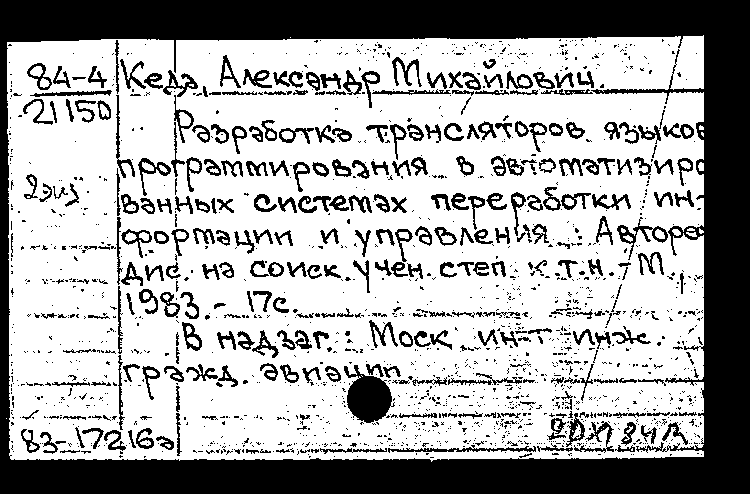 84-4
21150
Кеда, Александр Михайлович.
Разработка трансляторов языков
программирования в автоматизиро
2 экз
ванных системах переработки ин-
формации и управления : Авторе
дис. на соиск. учен. степ. к.т.н. - М.,
1983. - 17с.
В надзаг.: Моск. ин-т инж.
гражд. авиации
83-17216а